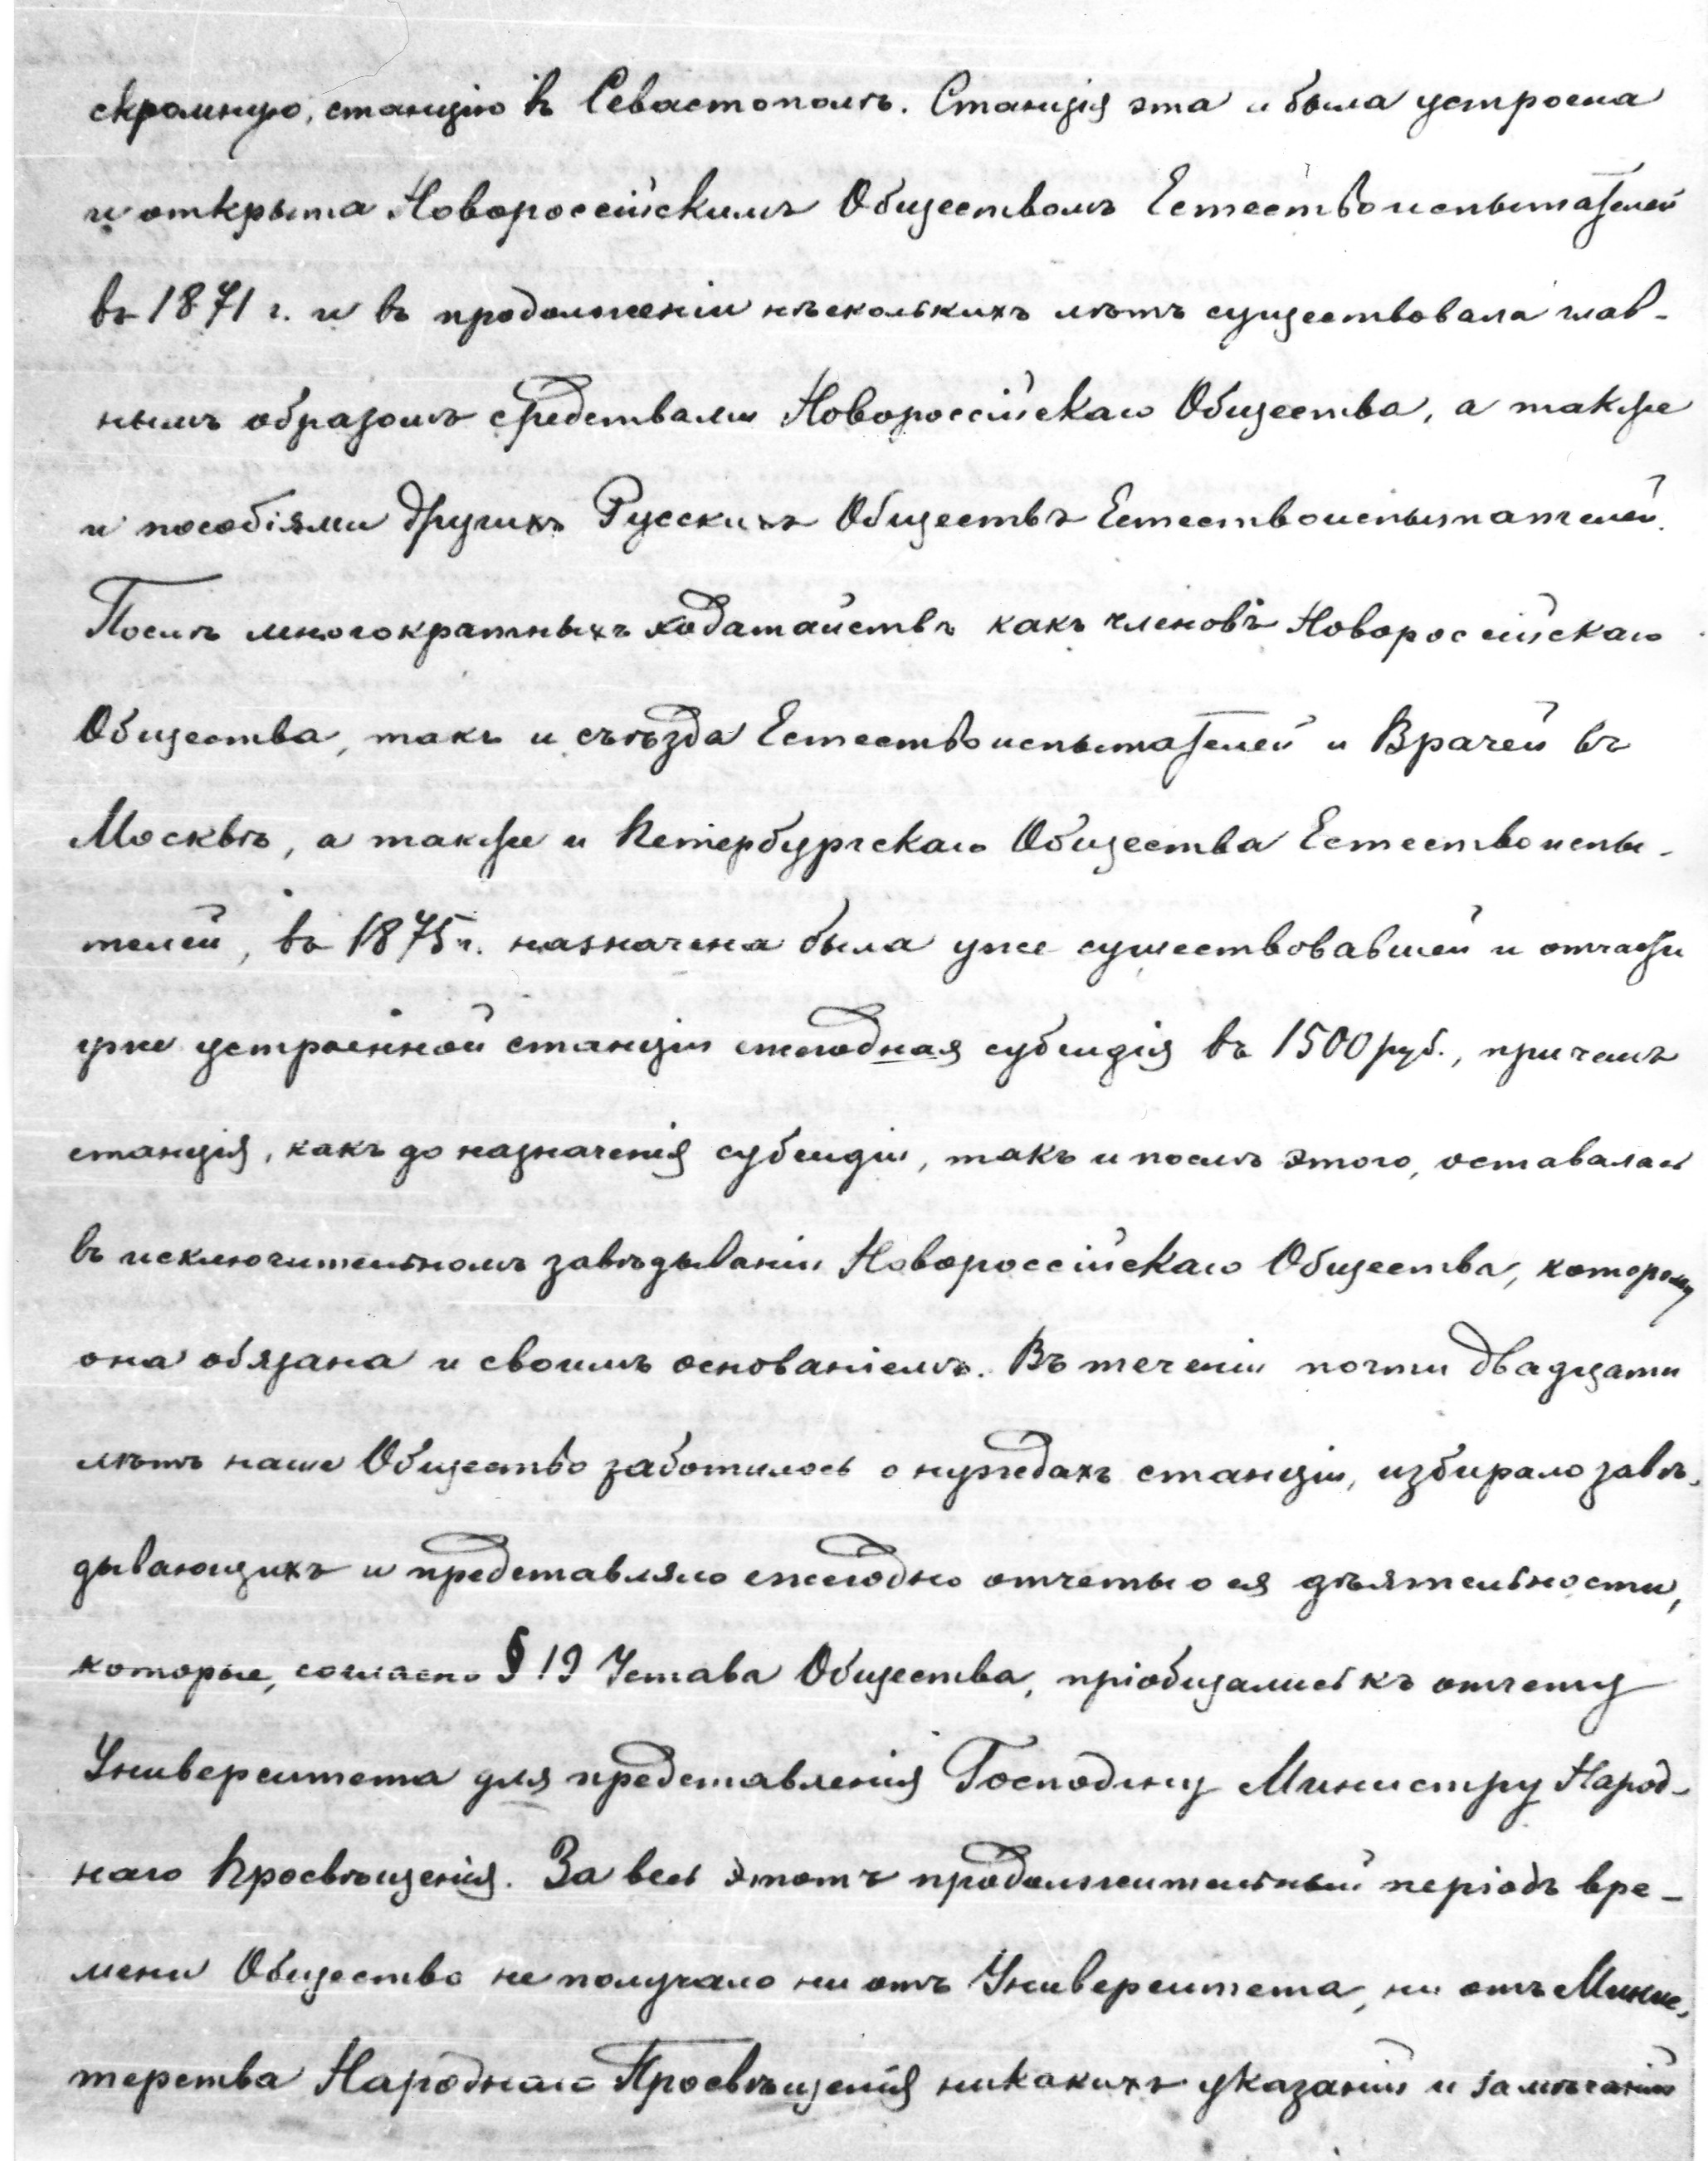 скромную, станцію в Севастополѣ. Станція эта и была устроена
и открыта Новороссійскимъ Обществомъ Естествоиспытателей
въ 1871 г. и въ продолженіи нѣсколькихъ лѣтъ существовала глав-
нымъ образомъ средствами Новороссійскаго Общества, а также
и пособіями другихъ Русскихъ Обществъ Естествоиспытателей.
Послѣ многократныхъ ходатайствъ какъ членовъ Новороссійскаго
Общества, такъ и съѣзда Естествоиспытателей и Врачей въ
Москвѣ, а также и Петербургскаго Общества Естествоиспы-
телей, въ 1875 г. назначена была уже существовавшей и отчасти
уже устроенной станціи ежегодная субсидія въ 1500 руб., причемъ
станція, какъ до назначенія субсидіи, такъ и послѣ этого, оставалась
въ исключительномъ завѣдываніи Новороссійскаго Общества, которому
она обязана и своимъ основаніемъ. Въ теченіи почти двадцати
лѣтъ наше Общество заботилось о нуждахъ станціи, избирало завѣ-
дывающихъ и представляло ежегодно отчеты о ея дѣятельности,
которые, согласно § 19 Устава Общества, пріобщались къ отчету
Университета для представленія Господину Министру Народ-
наго Просвѣщенія. За весь этотъ продолжительный періодъ вре-
мени Общество не получало ни отъ Университета, ни отъ Минис-
терства Народнаго Просвѣщенія никакихъ указаній и замѣчаній